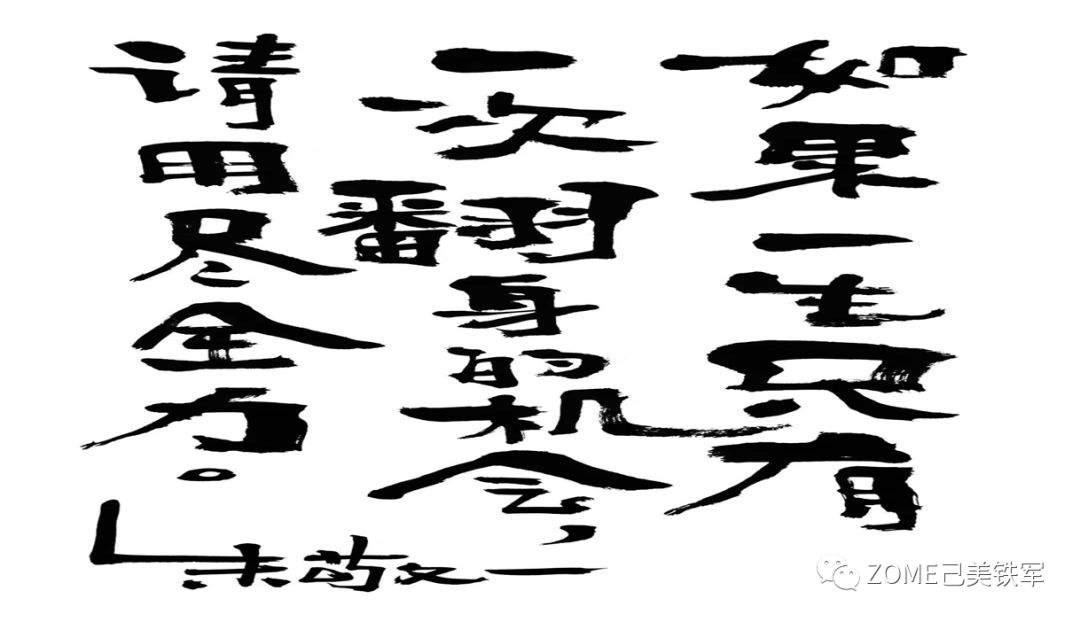 如果一生只有
一次翻身的机会，
请用尽全力。
——朱敬一
ZOME己美铁军